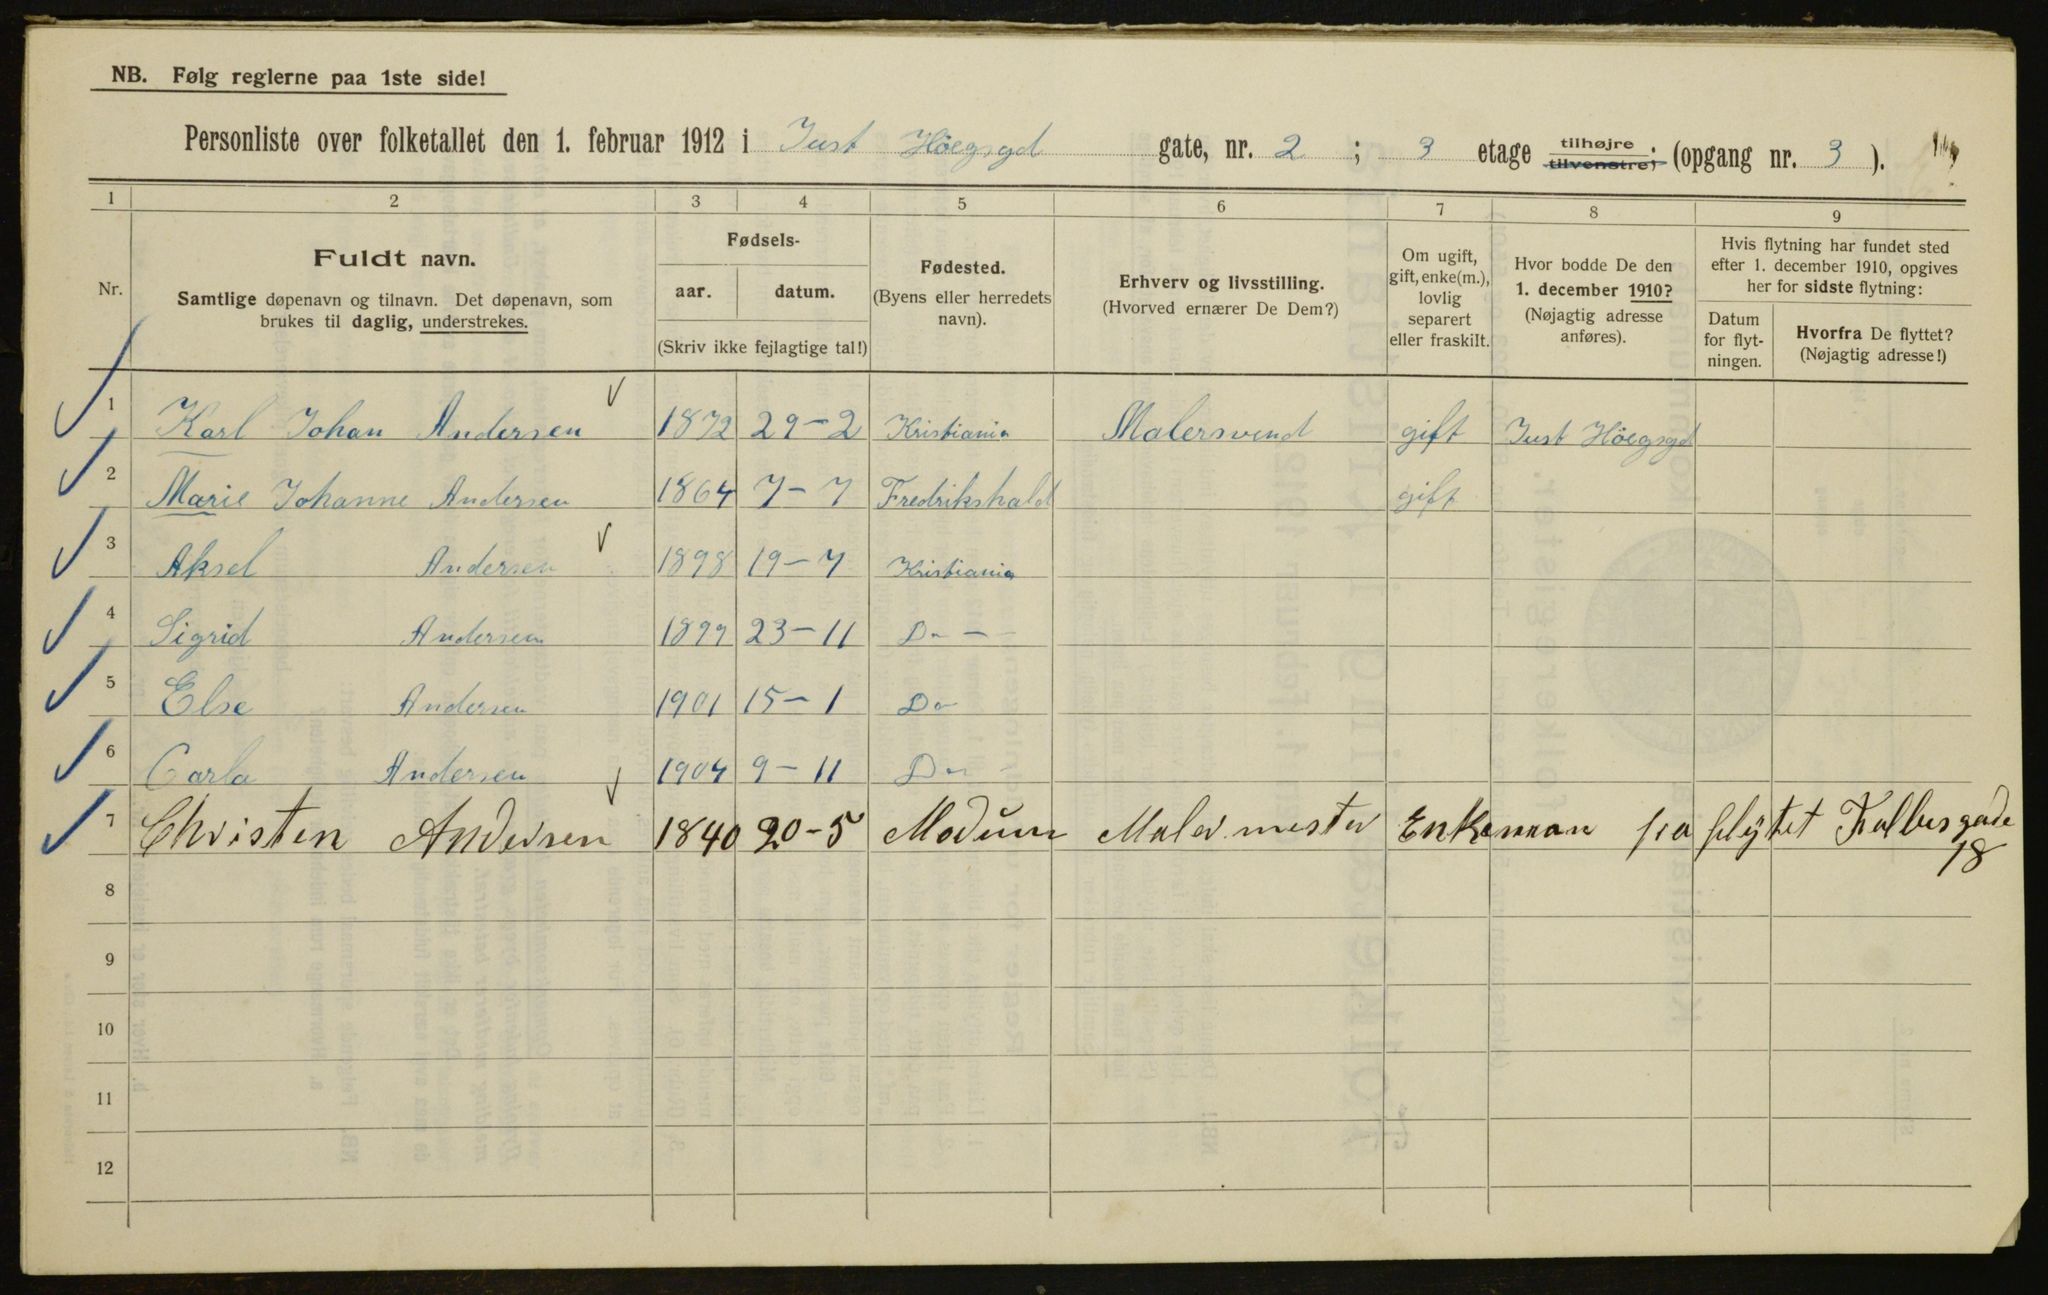 NB. Følg reglerne paa 1ste side!
Personliste over folketallet den 1. februar 1912 i Just Höegsgd gate, nr. 2 ; 3 etage tilhøjre tilvenstre; (opgang nr. 3 ).
1 2 3 4 5 6 7 8 9
Nr.
Fuldt navn.
Samtlige døpenavn og tilnavn. Det døpenavn, som
brukes til daglig, understrekes.
Fødsels-
aar. datum.
(Skriv ikke fejlagtige tal!)
Fødested.
(Byens eller herredets
navn).
Erhverv og livsstilling.
(Hvorved ernærer De Dem?)
Om ugift,
gift, enke(m.),
lovlig
separert
eller fraskilt.
Hvor bodde De den
1. december 1910?
(Nøjagtig adresse
anføres).
Hvis flytning har fundet sted
efter 1. december 1910, opgives
her for sidste flytning:
Datum
for flyt-
ningen.
Hvorfra De flyttet?
(Nøjagtig adresse!)
1 Karl Johan Andersen 1872 29-2 Kristiania Malersvend gift Just Höegsgd
2 Marie Johanne Andersen 1864 7-7 Fredrikshald gift
3 Aksel Andersen 1898 19-7 Kristiania
4 Sigrid Andersen 1899 23-11 Do -
5 Else Andersen 1901 15-1 Do
6 Carla Andersen 1904 9-11 Do -
7 Christen Andersen 1840 20-5 Modum Maler mester Enkeman fra flytet Falbesgade
18
8
9
10
11
12